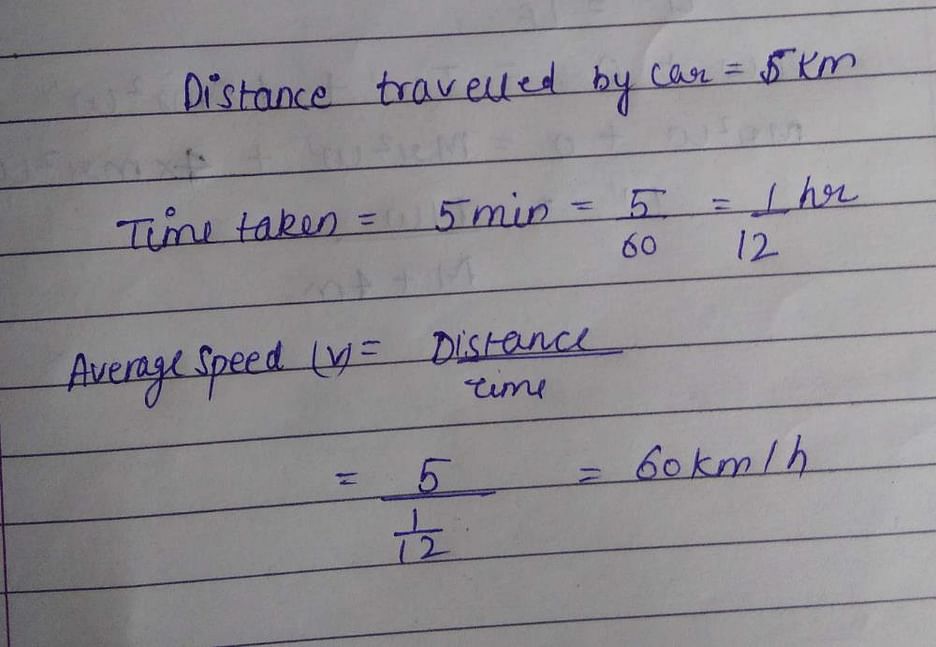 Distance travelled by car = 5 km
Time taken = 5 min = 5/60 = 1/12 hr
Average speed (v) = Distance/time
= 5/(1/12) = 60 km/h